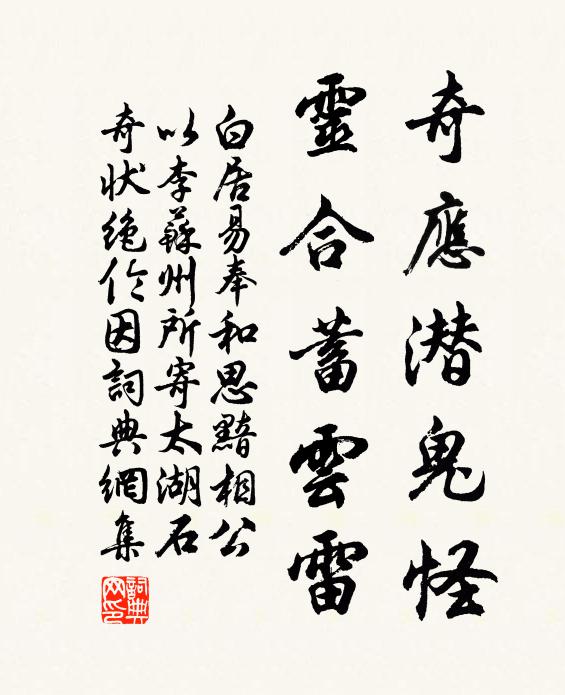 奇應潜鬼怪
靈合蓄雲雷
白居易奉和思黯相公
以李蘇州所寄太湖石
奇状絶伦因詞典網集
詞典网印